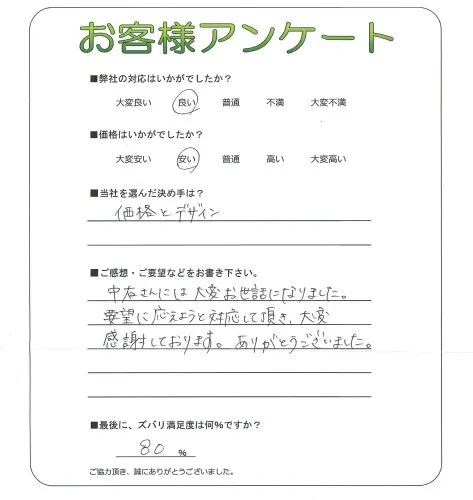 お客様アンケート
■弊社の対応はいかがでしたか？
大変良い 良い 普通 不満 大変不満
■価格はいかがでしたか？
大変安い 安い 普通 高い 大変高い
■当社を選んだ決め手は？
価格とデザイン
■ご感想・ご要望などをお書き下さい。
中右さんには大変お世話になりました。
要望に応えようと対応して頂き、大変
感謝しております。ありがとうございました。
■最後に、ズバリ満足度は何％ですか？
80 ％
ご協力頂き、誠にありがとうございました。